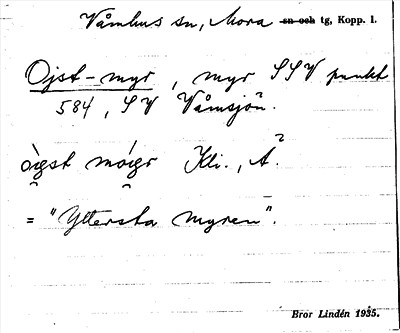 Våmhus sn, Mora sn och tg, Kopp. l.
Ojst-myr, myr SSV punkt
584, SV Våmsjön.
Kli., Å²
= "Yttersta myren".
Bror Lindén 1935.